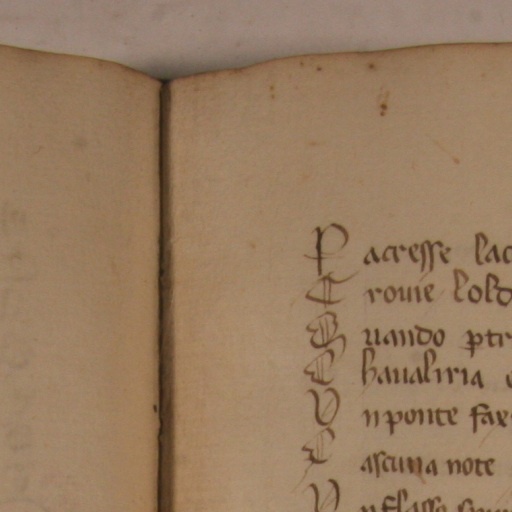 P acresse lac
T rouie lold
Q uando ptr
C haualiria
V n ponte fax
L ascuna note